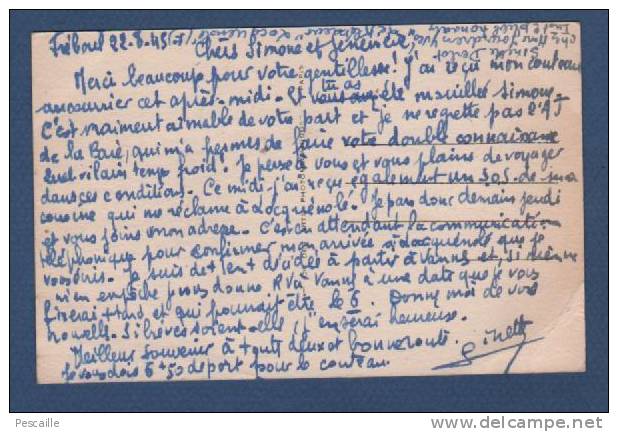 Tréboul 22-8-45
Chères Simone et Geneviève,
Merci beaucoup pour votre gentillesse! J'ai reçu mon couteau
au courrier cet après-midi. Et tu as Simone-
C'est vraiment aimable de votre part et je ne regrette pas l'AJ
de la Baie, qui m'a permis de faire votre double connaissance
Quel vilain temps froid. Je pense à vous et vous plains de voyager
dans ces conditions. Ce midi j'ai reçu également un SOS de ma
cousine qui me réclame à Locquénolé. Je pars donc demain jeudi
et vous joins mon adresse. C'est en attendant la communication
téléphonique pour confirmer mon arrivée à Locquénolé que je
vous écris. Je suis de tent d'idée à partir à Vannes et, si même
rien empêche vous donne RV à Vannes à une date que je vous
fixerai + tard, et qui pourrait être le 6. Donne moi de vos
nouvelles. Si brèves soient-elles, j'en serai heureuse.
Meilleur souvenir à toutes deux et bonne route.
Ginette
Je vous dois 6+50 de port pour le couteau.
Pescaille
www.delcampe.net